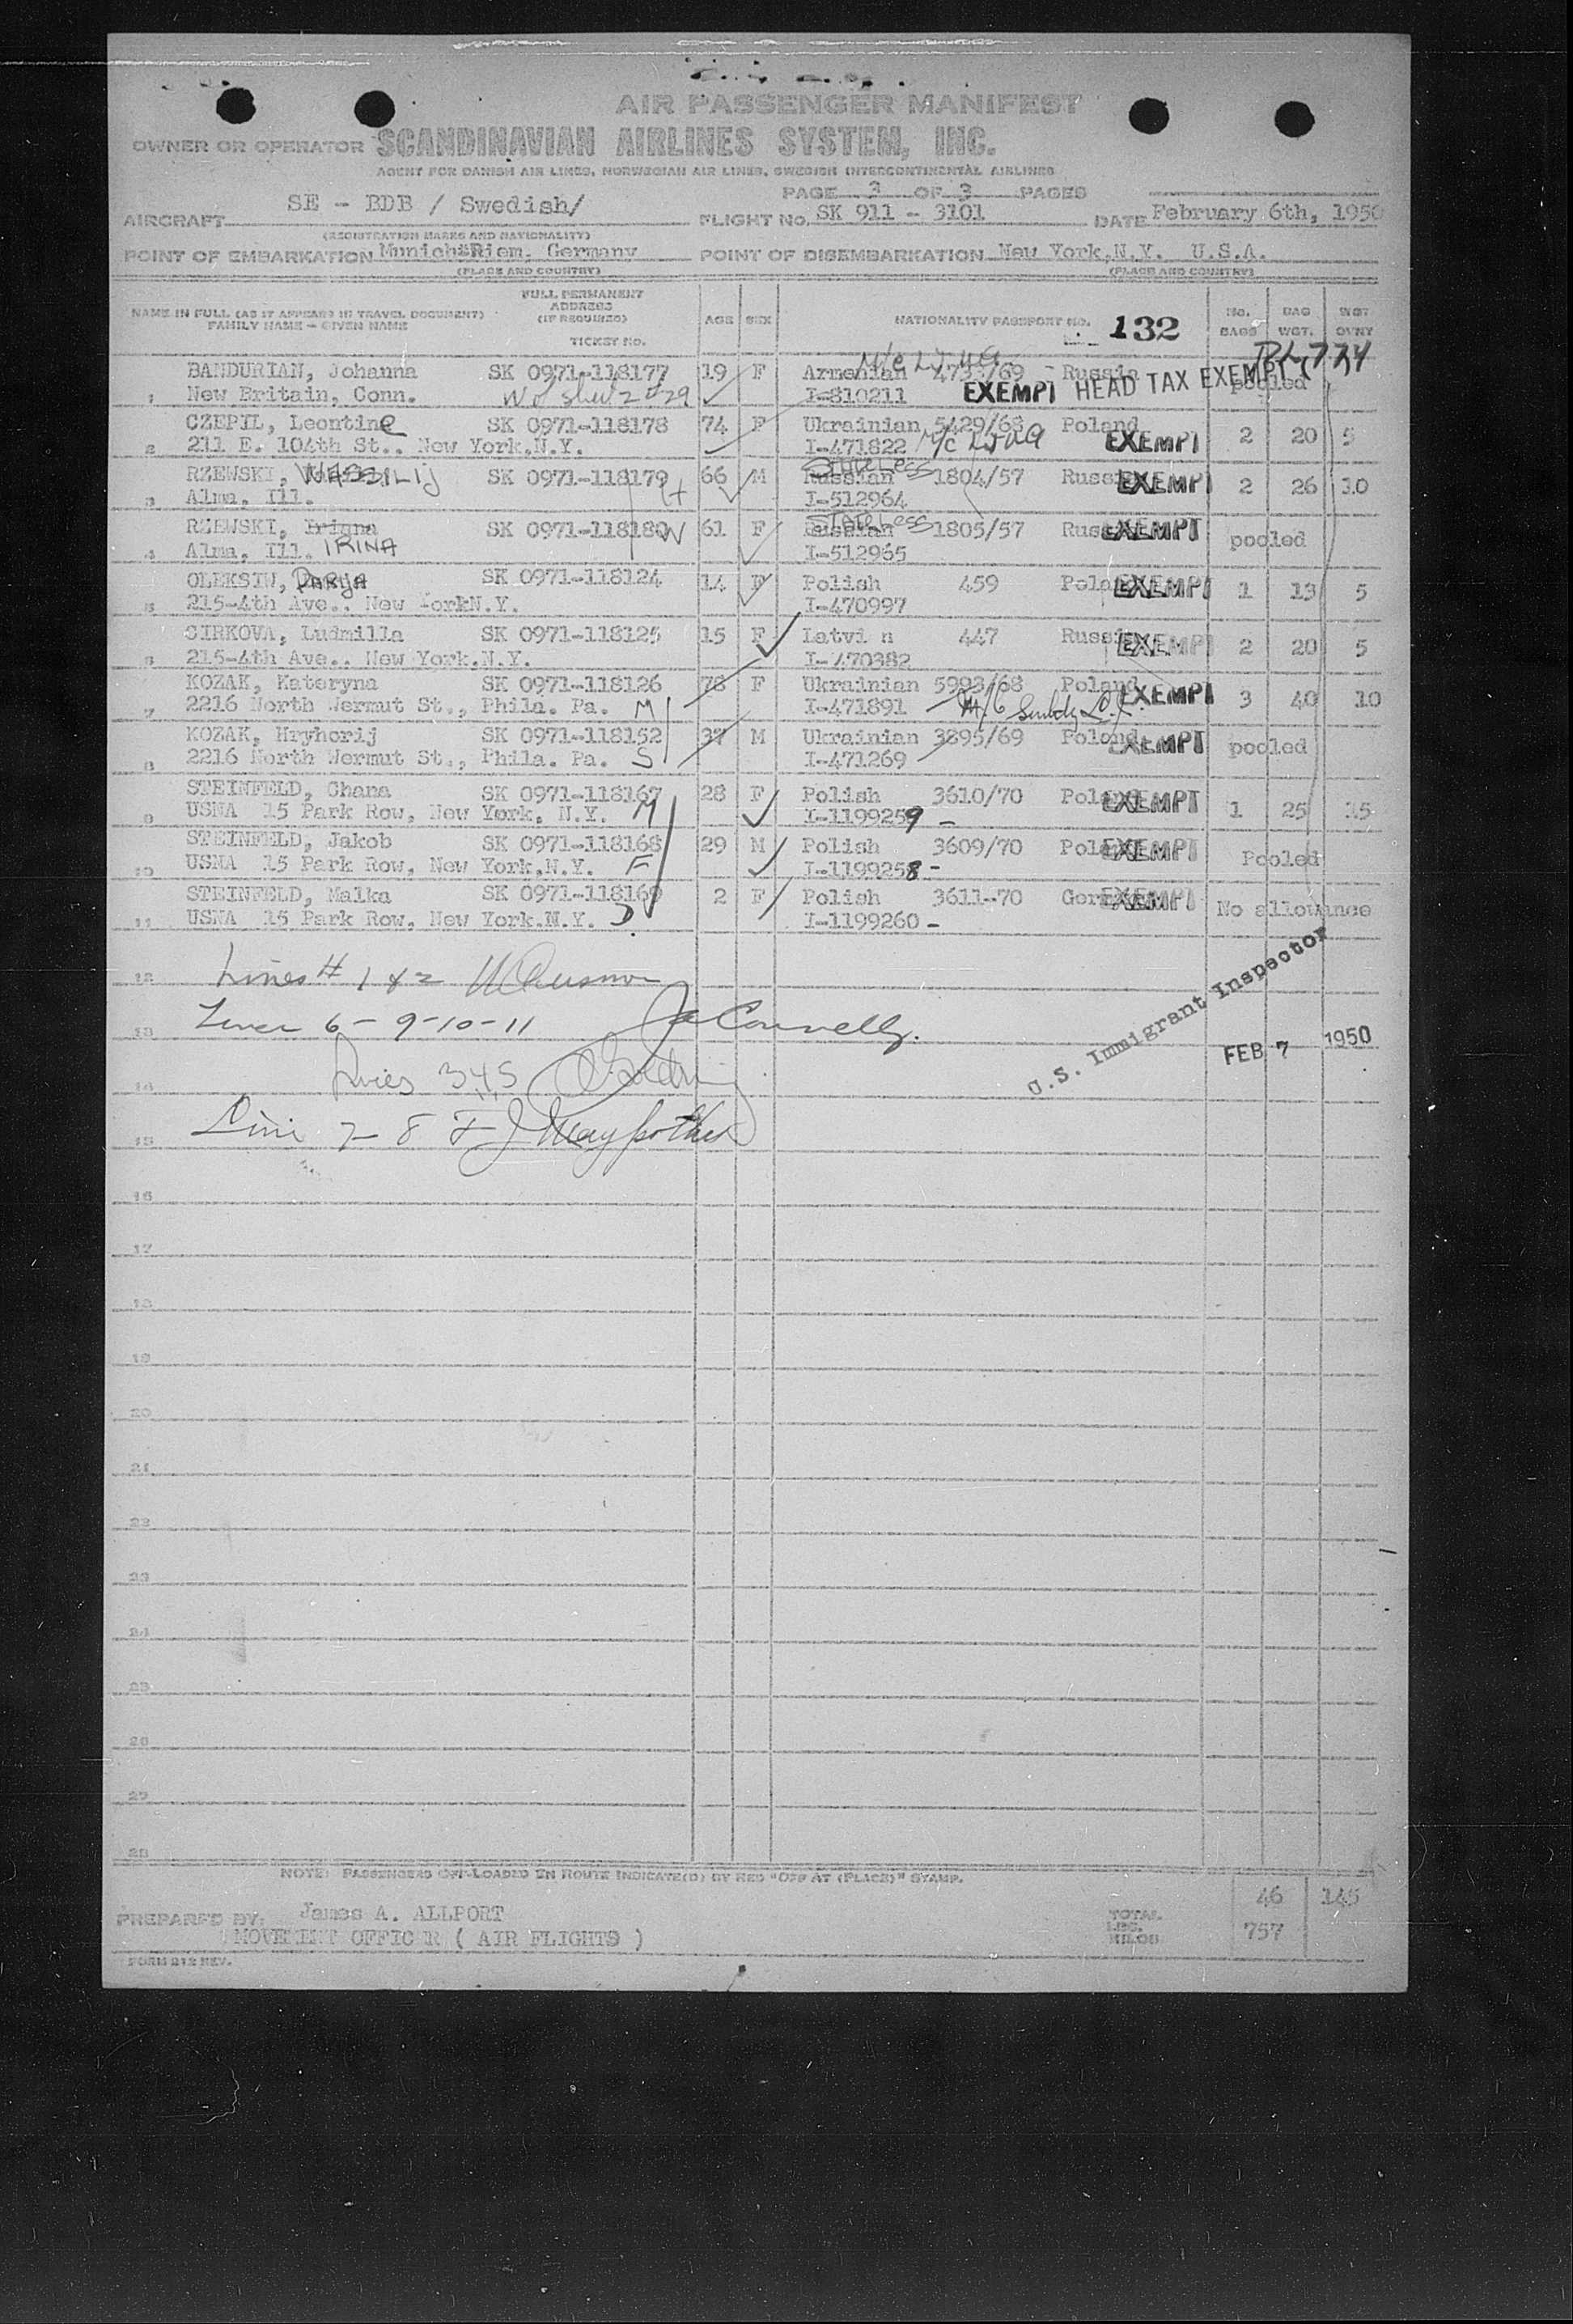 AIR PASSENGER MANIFEST
OWNER OR OPERATOR SCANDINAVIAN AIRLINES SYSTEM, INC.
AGENT FOR DANISH AIR LINES, NORWEGIAN AIR LINES, SWEDISH INTERCONTINENTAL AIRLINES
PAGE 3 OF 3 PAGES
AIRCRAFT SE - BDB / Swedish/ FLIGHT NO. SK 911 - 3101 DATE February 6th, 1950
(REGISTRATION MARKS AND NATIONALITY)
POINT OF EMBARKATION Munich-Riem, Germany POINT OF DISEMBARKATION New York,N.Y. U.S.A.
(PLACE AND COUNTRY) (PLACE AND COUNTRY)
NAME IN FULL (AS IT APPEARS IN TRAVEL DOCUMENT) FAMILY NAME - GIVEN NAME FULL PERMANENT ADDRESS (IF REQUIRED) TICKET NO. AGE SEX NATIONALITY PASSPORT NO. 132 NO. BAGS BAG WGT. WGT OVNY
PL 774
BANDURIAN, Johanna SK 0971-118177 19 F Armenian 4733/69 - Russia pooled
1 New Britain, Conn. I-810211 EXEMPT HEAD TAX EXEMPT
CZEPIL, Leontine SK 0971-118178 74 F Ukrainian 5429/68 Poland EXEMPT 2 20 5
2 211 E. 104th St.. New York,N.Y. I-471822
RZEWSKI, WASSILIJ SK 0971-118179 H 66 M Stateless Russian 1804/57 Russia EXEMPT 2 26 10
3 Alma, Ill. I-512964
RZEWSKI, Irigna SK 0971-118180 W 61 F Stateless Russian 1805/57 Russia EXEMPT pooled
4 Alma, Ill. IRINA I-512965
OLEKSIW, DARYA SK 0971-118124 14 F Polish 459 Poland EXEMPT 1 13 5
5 215-4th Ave.. New YorkN.Y. I-470997
CIRKOVA, Ludmilla SK 0971-118125 15 F Latvi n 447 Russia EXEMPT 2 20 5
6 215-4th Ave.. New York.N.Y. I-470382
KOZAK, Kateryna SK 0971-118126 78 F Ukrainian 5993/68 Poland EXEMPT 3 40 10
7 2216 North Wermut St., Phila. Pa. M I-471891
KOZAK, Hryhorij SK 0971-118152 37 M Ukrainian 3895/69 Poland EXEMPT pooled
8 2216 North Wermut St., Phila. Pa. S I-471269
STEINFELD, Chana SK 0971-118167 28 F Polish 3610/70 Poland EXEMPT 1 25 15
9 USNA 15 Park Row, New York, N.Y. M I-1199259 -
STEINFELD, Jakob SK 0971-118168 29 M Polish 3609/70 Poland EXEMPT Pooled
10 USNA 15 Park Row, New York,N.Y. F I-1199258 -
STEINFELD, Malka SK 0971-118169 2 F Polish 3611-70 Germany EXEMPT No allowance
11 USNA 15 Park Row, New York.N.Y. D I-1199260 -
12 Lines # 1 & 2
13 6 - 9-10-11 Connelly.
U.S. Immigrant Inspector
FEB 7 1950
14 Lines 3 4 5
15 Line 7 - 8
16
17
18
19
20
21
22
23
24
25
26
27
28
NOTE: PASSENGERS OFF-LOADED EN ROUTE INDICATE(D) BY RED "OFF AT (PLACE)" STAMP.
46 145
PREPARED BY: James A. ALLPORT TOTAL LBS. KILOS 757
MOVEMENT OFFIC R ( AIR FLIGHTS )
FORM 212 REV.